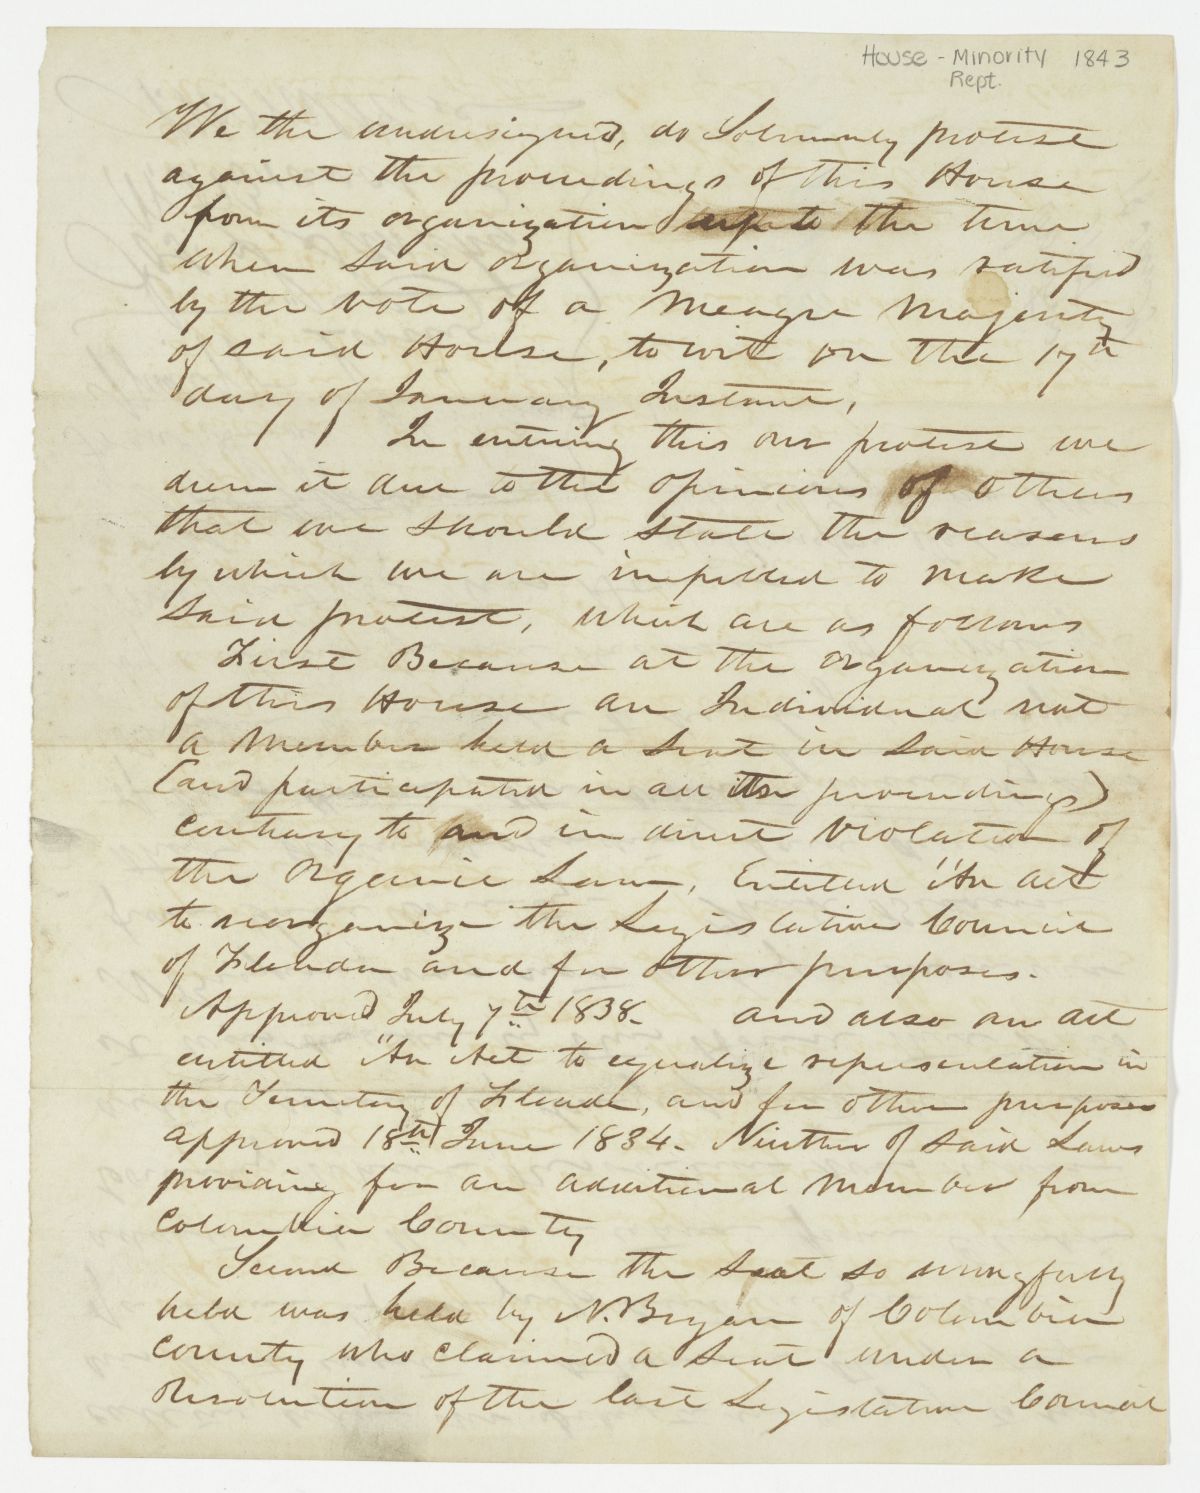 House - Minority 1843
Rept.
We the undersigned, do Solemnly protest
against the proceedings of this House
from its organization up to the time
when said organization was ratified
by the vote of a Meagre Majority
of said House, to wit on the 17th
day of January Instant,
In entering this our protest we
deem it due to the opinions of others
that we should state the reasons
by which we are impelled to make
said protest, which are as follows
First Because at the organization
of this House an Individual not
a Member held a seat in said House
(and participated in all its proceedings)
contrary to and in direct violation of
the Organic Law, Entitled "An act
to reorganize the Legislative Council
of Florida and for other purposes.
Approved July 7th 1838. and also an act
entitled "An Act to equalize representation in
the Territory of Florida, and for other purposes
approved 18th June 1834. Neither of said Laws
providing for an additional Member from
Columbia County
Second Because the seat so wrongfully
held was held by N. Bryan of Columbia
county who claimed a seat under a
Resolution of the last Legislative Council